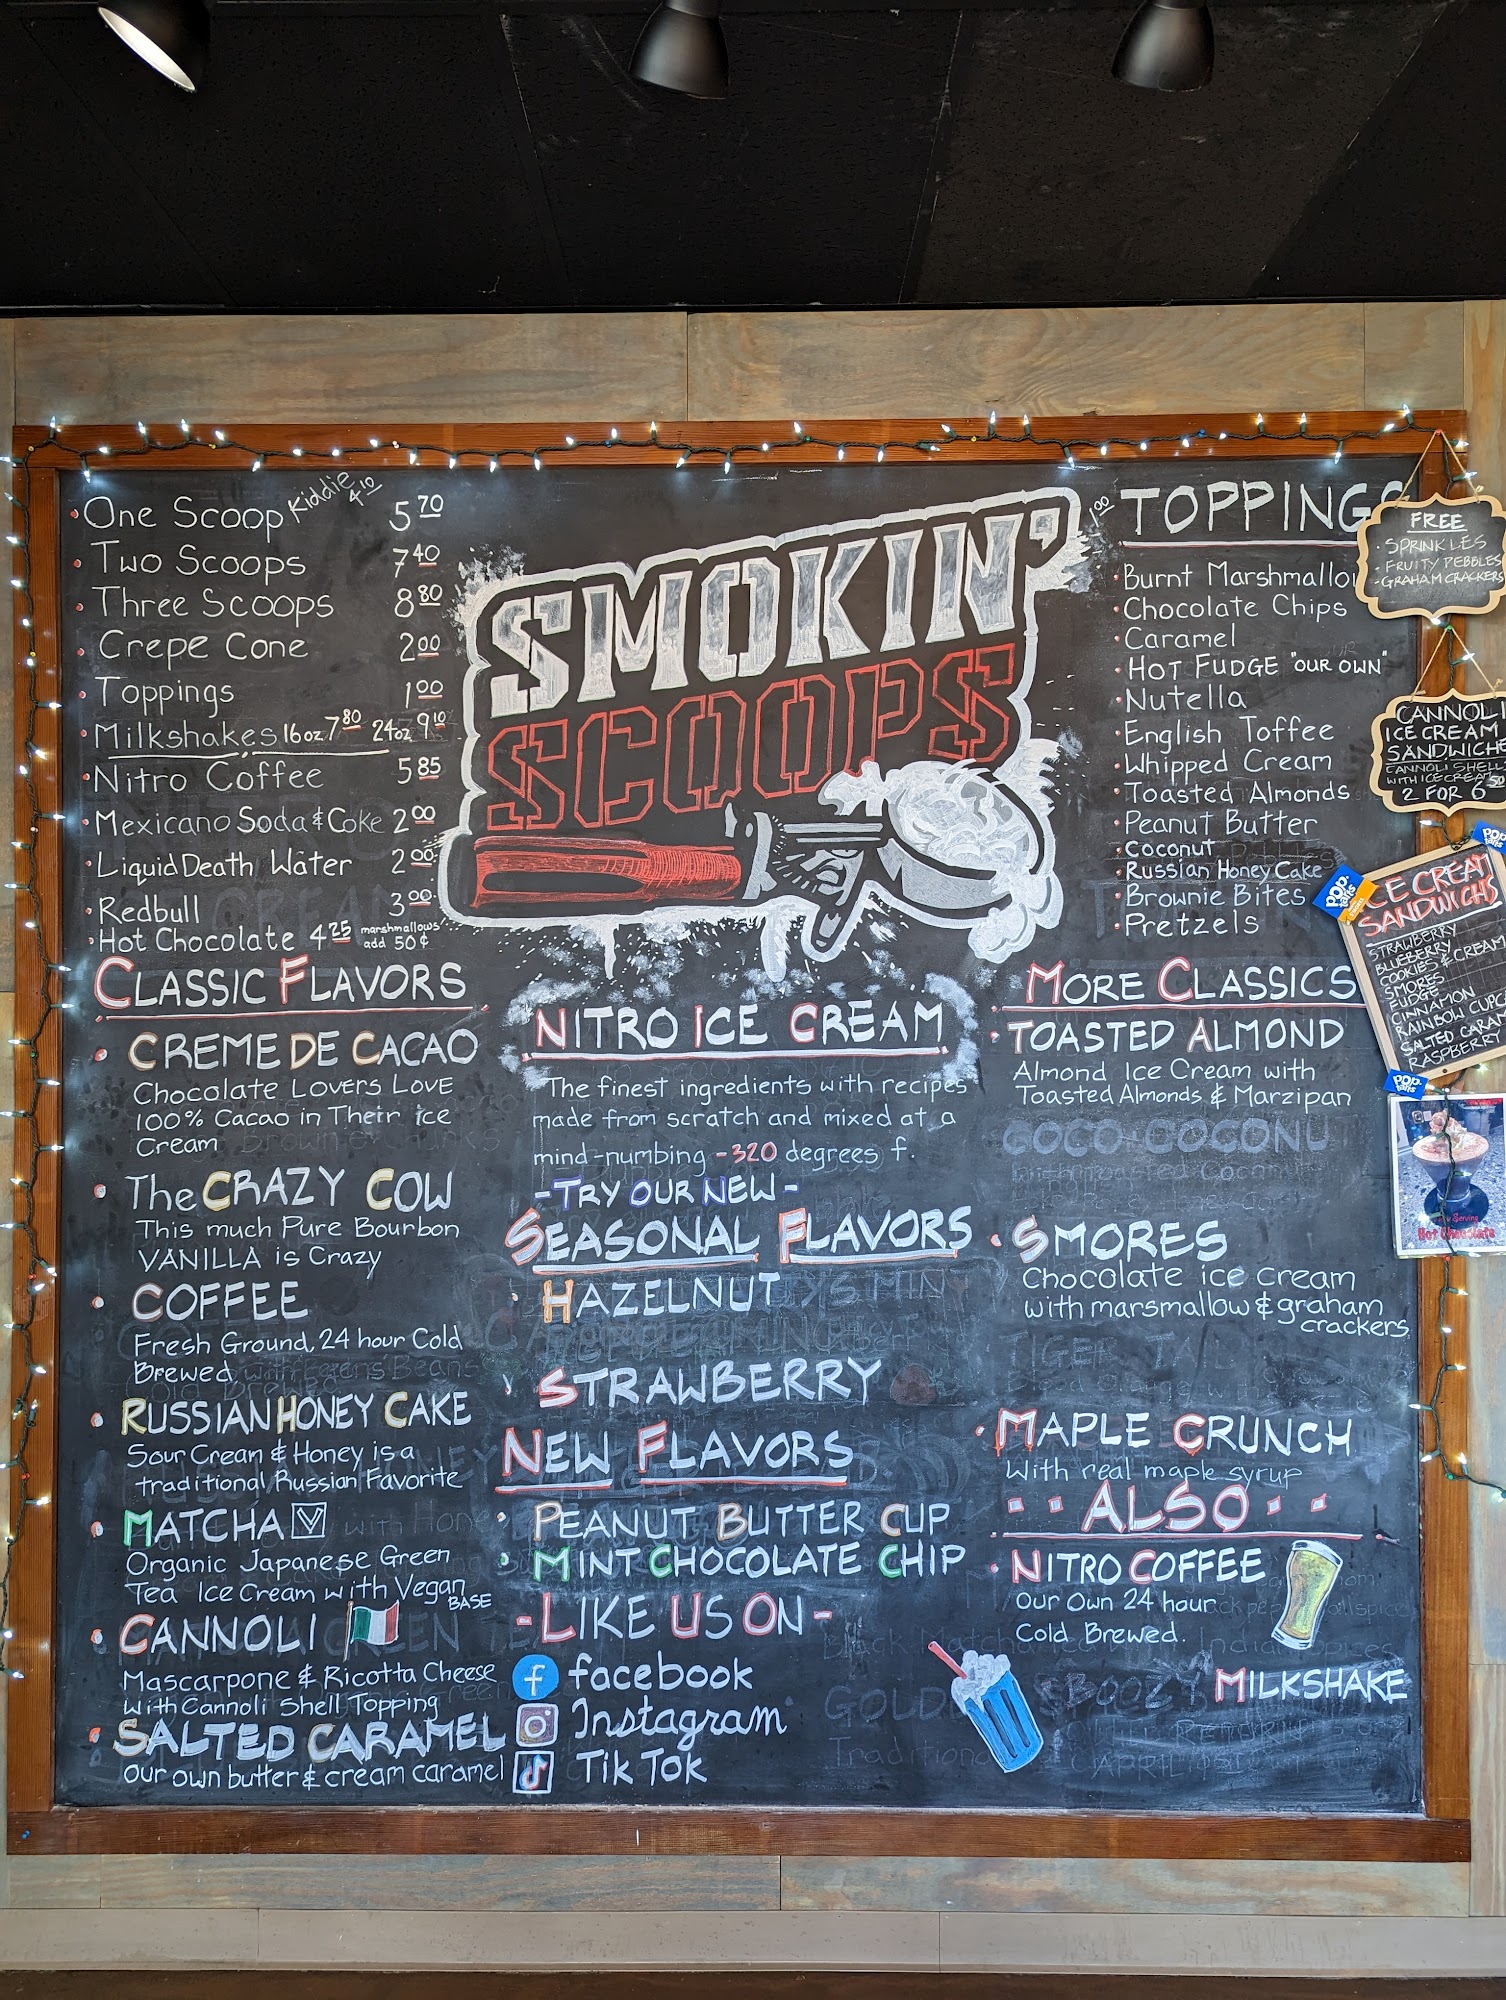 One Scoop Kiddie 4.10 5.70
Two Scoops 7.40
Three Scoops 8.80
Crepe Cone 2.00
Toppings 1.00
Milkshakes 16oz 7.80 24oz. 9.10
Nitro Coffee 5.85
Mexicano Soda & Coke 2.00
Liquid Death Water 2.00
Redbull 3.00
Hot Chocolate 4.25 marshmallows add 50¢
SMOKIN'
SCOOPS
1.00 TOPPINGS
Burnt Marshmallo
Chocolate Chips
Caramel
HOT FUDGE "OUR OWN"
Nutella
English Toffee
Whipped Cream
Toasted Almonds
Peanut Butter
Coconut
Russian Honey Cake
Brownie Bites
Pretzels
FREE
SPRINKLES
FRUITY PEBBLES
GRAHAM CRACKERS
CANNOLI
ICE CREAM
SANDWICHE
CANNOLI SHELL
WITH ICE CREA
2 FOR 6.50
pop.tarts
pop.tarts
ICE CREAM
SANDWICHS
STRAWBERRY
BLUEBERRY
COOKIES & CREAM
SMORES
FUDGE
CINNAMON
RAINBOW CUPC
SALTED CARAM
RASPBERRY
pop.tarts
Serving
Hot Chocolate
CLASSIC FLAVORS
CREME DE CACAO
Chocolate LOVERS LOVE
100% Cacao in Their ice
Cream
The CRAZY COW
This much Pure Bourbon
VANILLA is Crazy
COFFEE
Fresh Ground, 24 hour Cold
Brewed
RUSSIAN HONEY CAKE
Sour Crean & Honey is a
traditional Russian Favorite
MATCHA V
Organic Japanese Green
Tea Ice Cream with Vegan
BASE
CANNOLI
Mascarpone & Ricotta Cheese
With Cannoli Shell Topping
SALTED CARAMEL
our own butter & cream caramel
NITRO ICE CREAM
The finest ingredients with recipes
made from scratch and mixed at a
mind-numbing -320 degrees f.
-TRY OUR NEW-
SEASONAL FLAVORS
HAZELNUT
STRAWBERRY
NEW FLAVORS
PEANUT BUTTER CUP
MINT CHOCOLATE CHIP
-LIKE US ON-
facebook
Instagram
TikTok
MORE CLASSICS
TOASTED ALMOND
Almond Ice Cream with
Toasted Almonds & Marzipan
COCO COCONU
SMORES
Chocolate ice cream
with marsmallow & graham
crackers
MAPLE CRUNCH
With real maple syrup
ALSO
NITRO COFFEE
Our Own 24 hour
Cold Brewed.
BOOZY MILKSHAKE